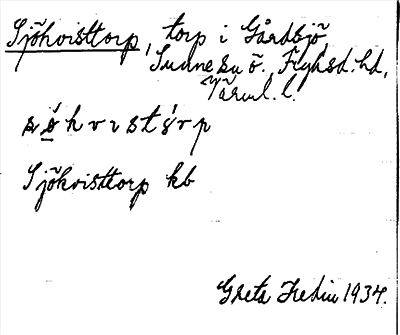 Sjökvisttorp, torp i Gårdsjö,
Sunne sn ö. Fryksd. hd,
Värml. l.
s ö k v ɪ s t ö r p
Sjökvisttorp kb
Greta Hedin 1934.